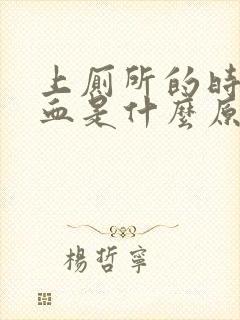 上厠所的時
血是什麼原
楊哲寧